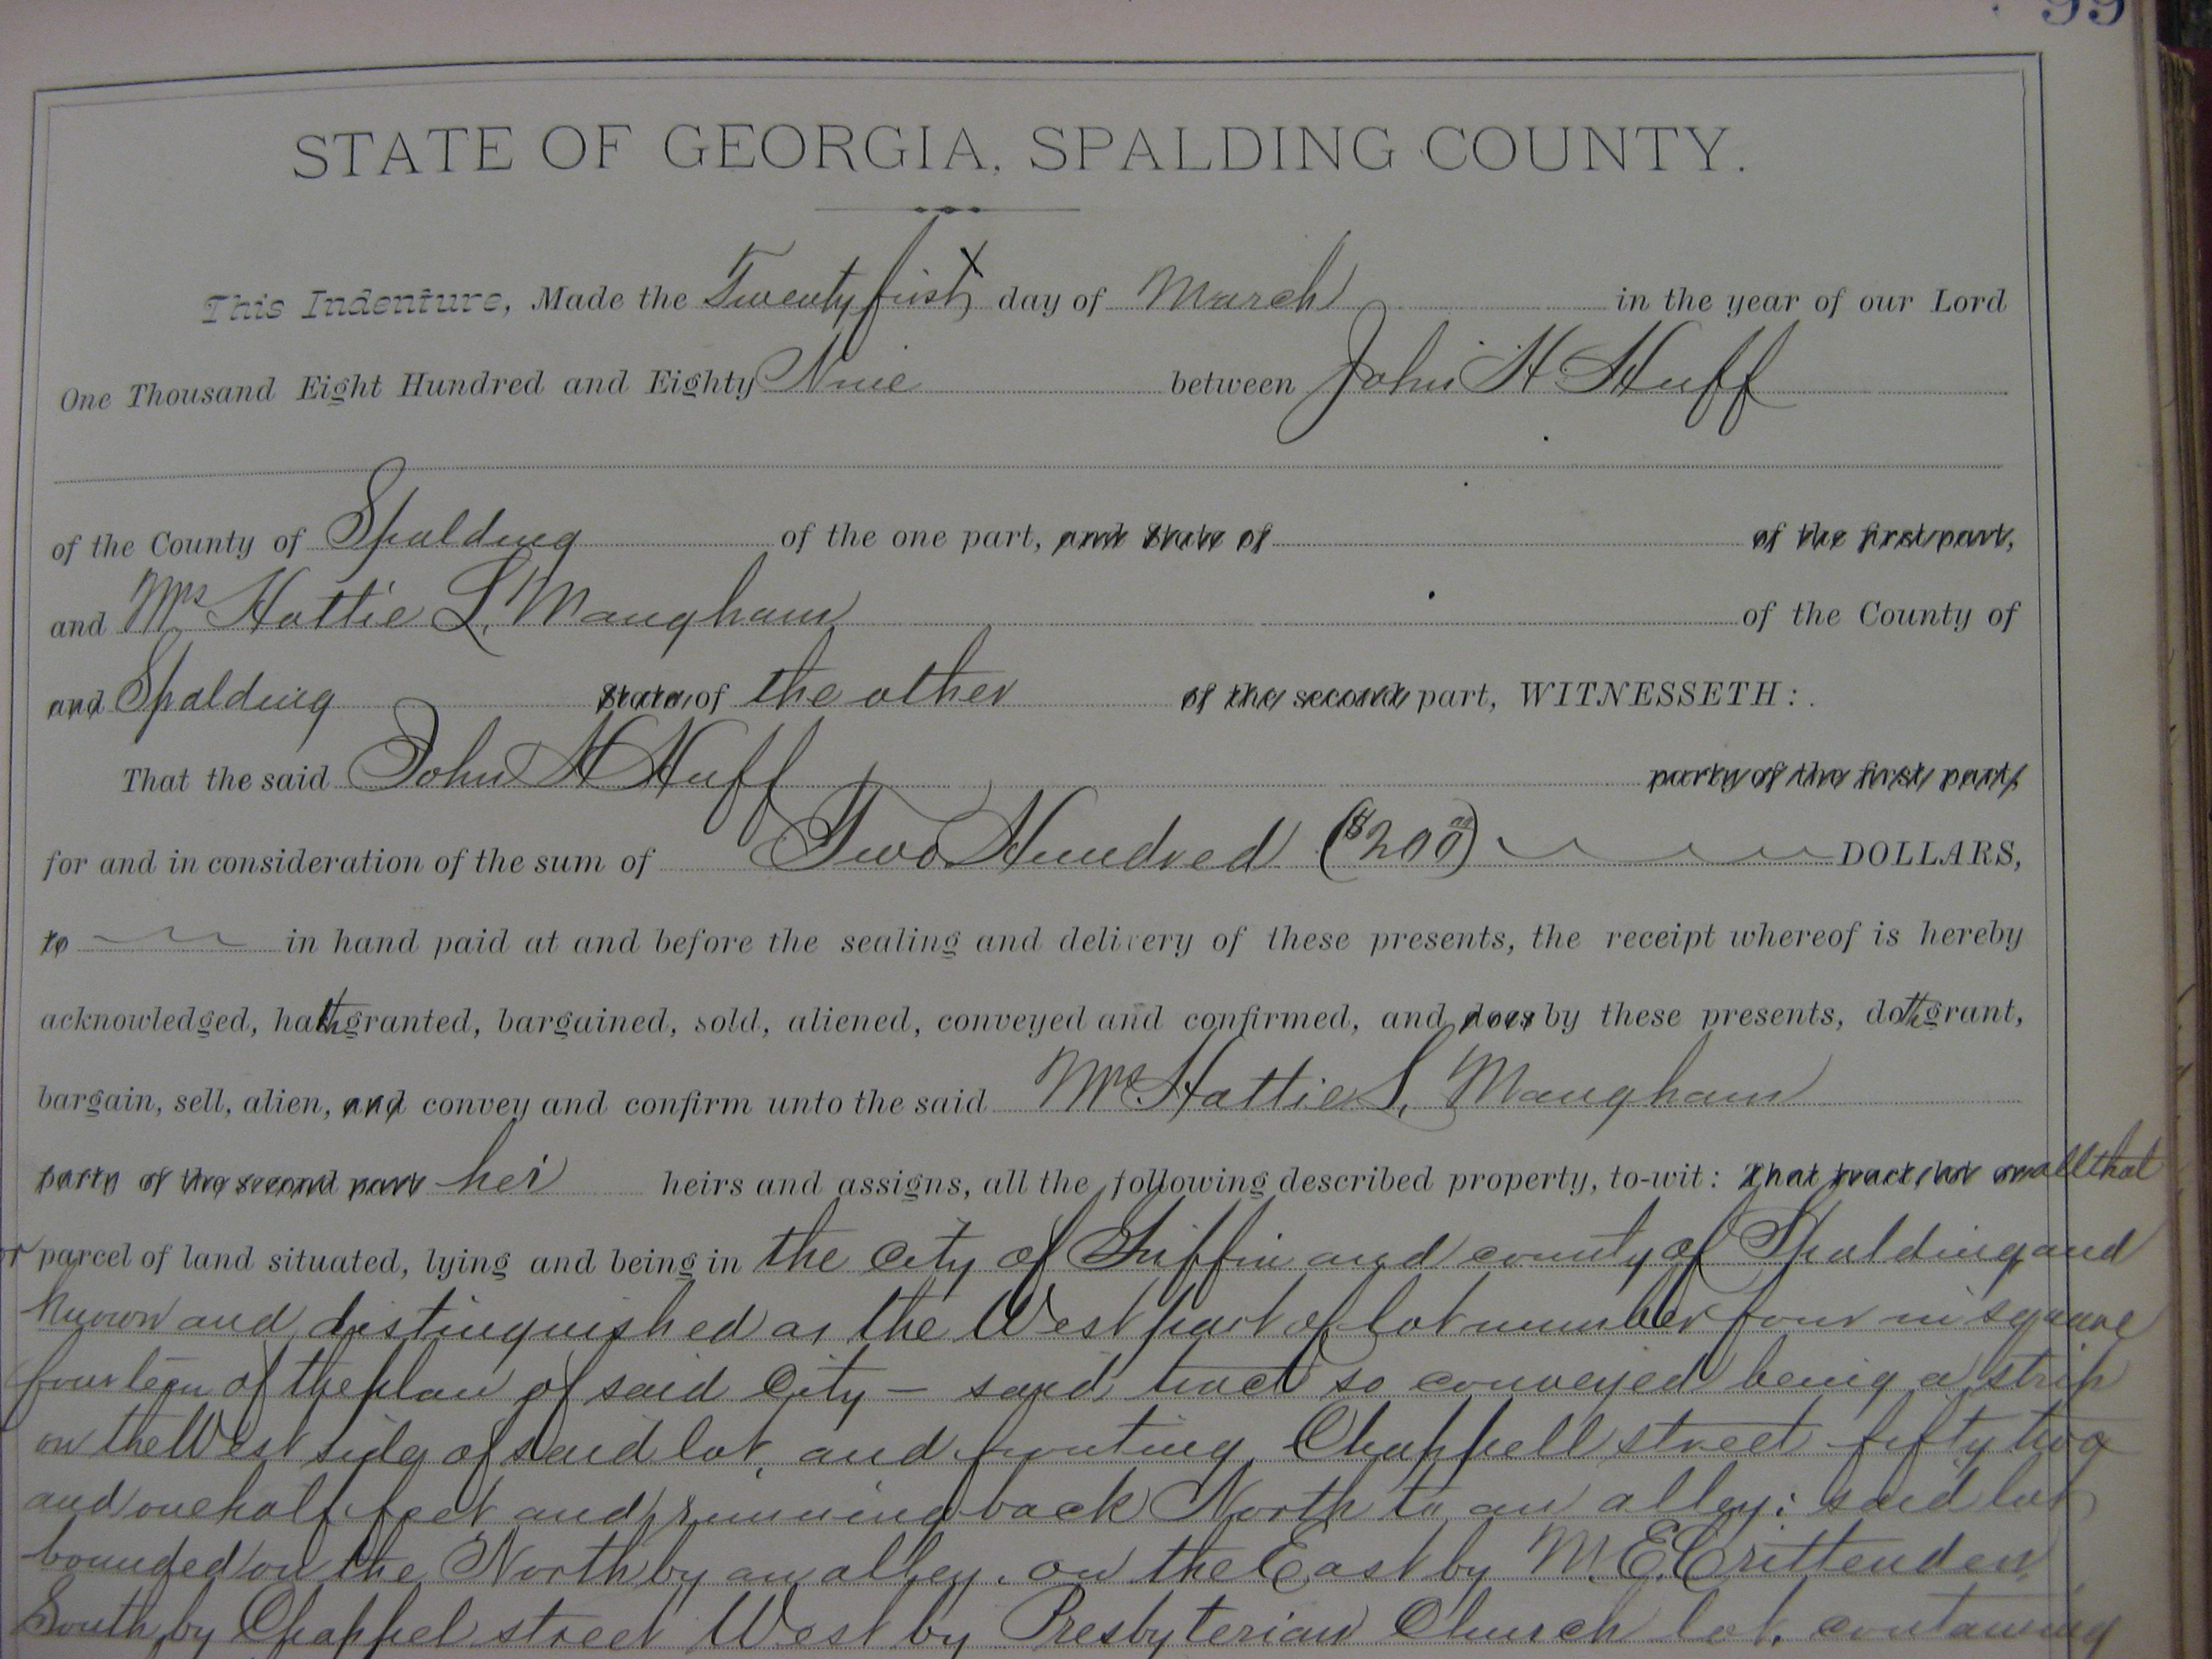 99
STATE OF GEORGIA, SPALDING COUNTY.
This Indenture, Made the Twenty first day of March in the year of our Lord
One Thousand Eight Hundred and Eighty Nine between John H Huff
of the County of Spalding of the one part, and State of of the first part,
and Mrs Hattie L. Maugham of the County of
and Spalding State of the other of the second part, WITNESSETH:
That the said John H Huff party of the first part,
for and in consideration of the sum of Two Hundred ($200 00) DOLLARS,
to in hand paid at and before the sealing and delivery of these presents, the receipt whereof is hereby
acknowledged, hath granted, bargained, sold, aliened, conveyed and confirmed, and does by these presents, doth grant,
bargain, sell, alien, and convey and confirm unto the said Mrs Hattie L. Maugham
party of the second part her heirs and assigns, all the following described property, to-wit: That tract, lot or all that
or parcel of land situated, lying and being in the city of Griffin and county of Spalding and
known and distinguished as the West part of lot number four in square
fourteen of the plan of said City – said tract so conveyed being a strip
on the West side of said lot, and fronting Chappell street fifty two
and one half feet and running back North to an alley: said lot
bounded on the North by an alley. on the East by M. E. Crittenden
South by Chappel street West by Presbyterian Church lot. containing